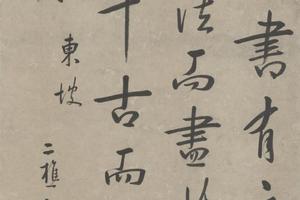 書有
法而盡
千古而
東坡
二樵